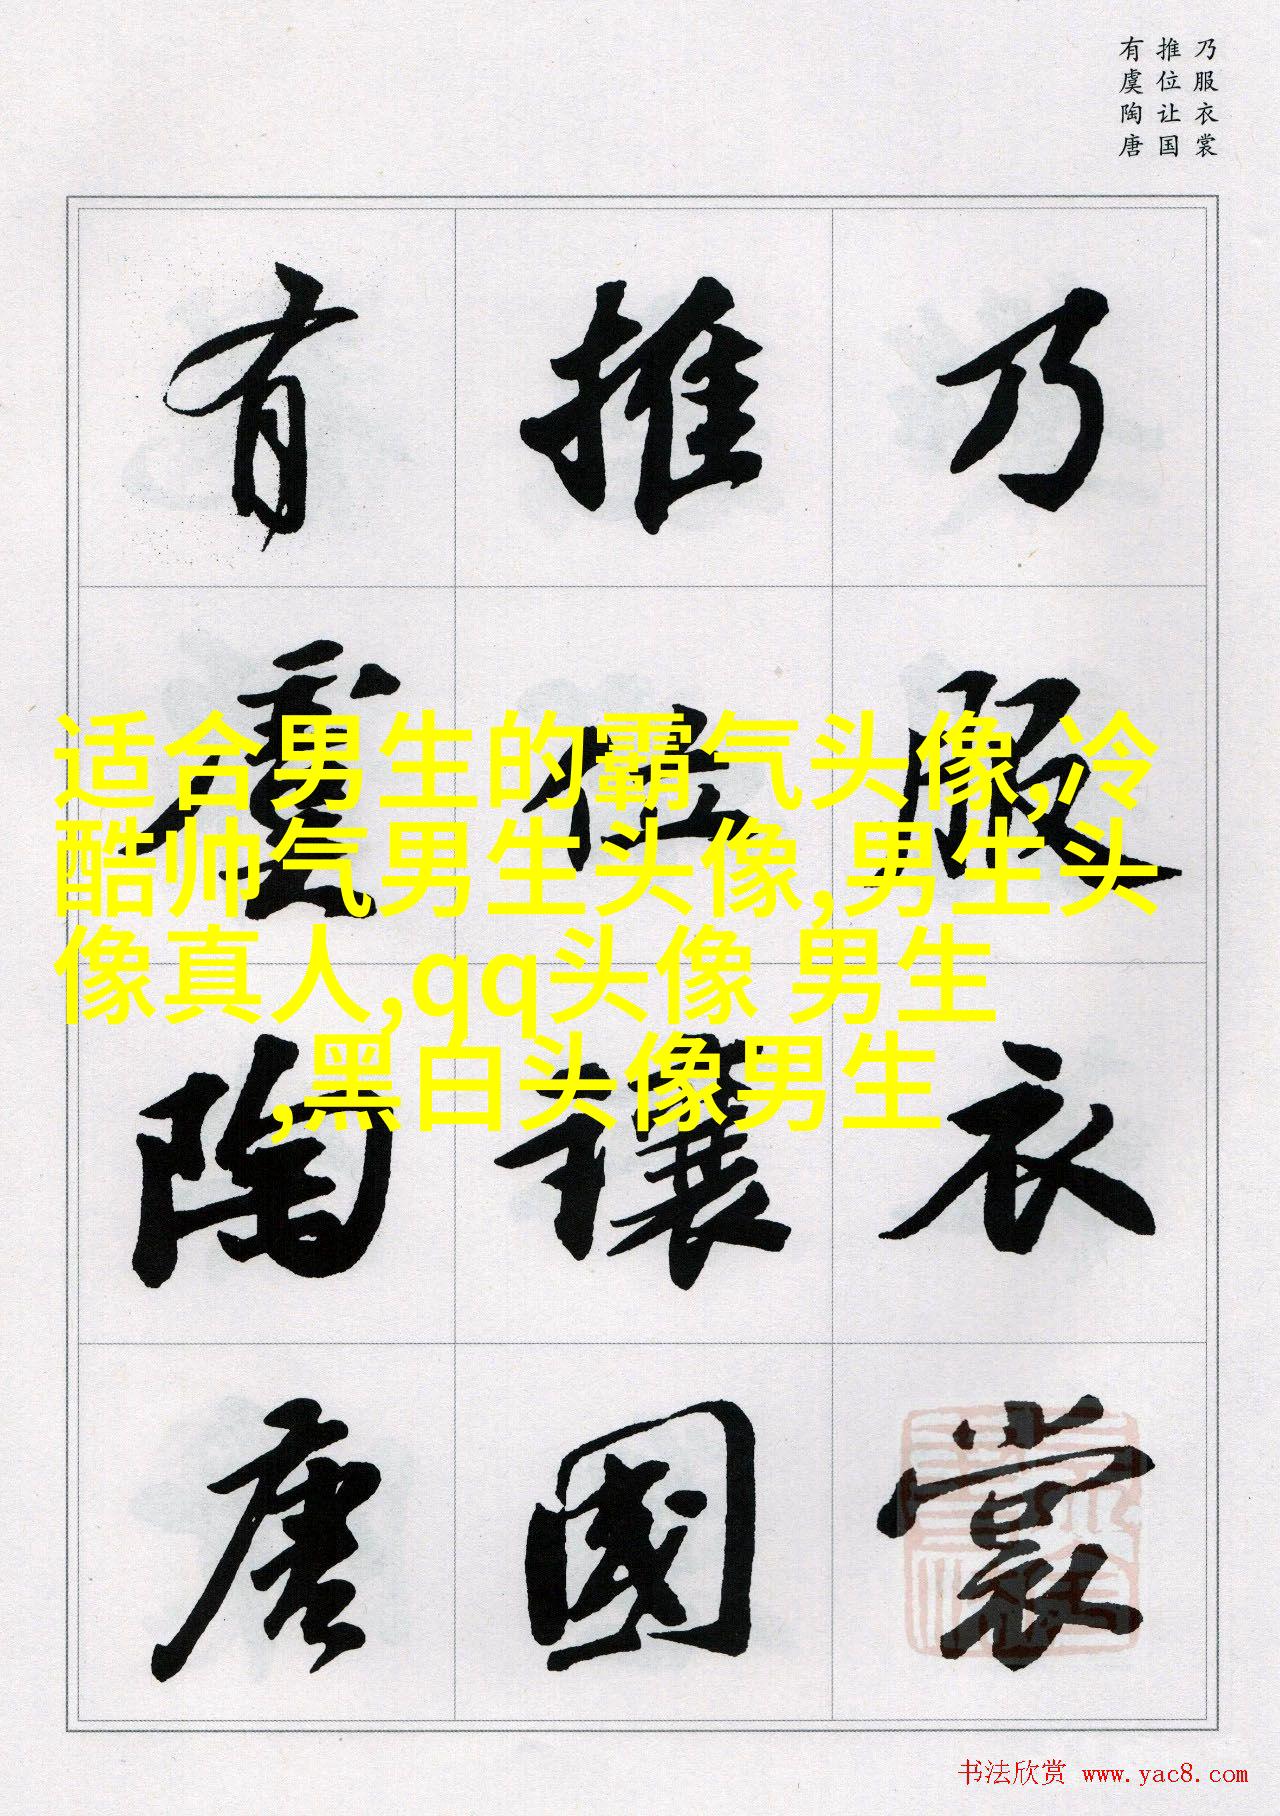 乃服衣裳
推位让国
有虞陶唐
乃服衣裳
推位讓國
有虞陶唐
适合男生的霸气头像,冷
酷帅气男生头像,男生头
像真人,qq头像 男生
,黑白头像男生
书法欣赏 www.yac8.com